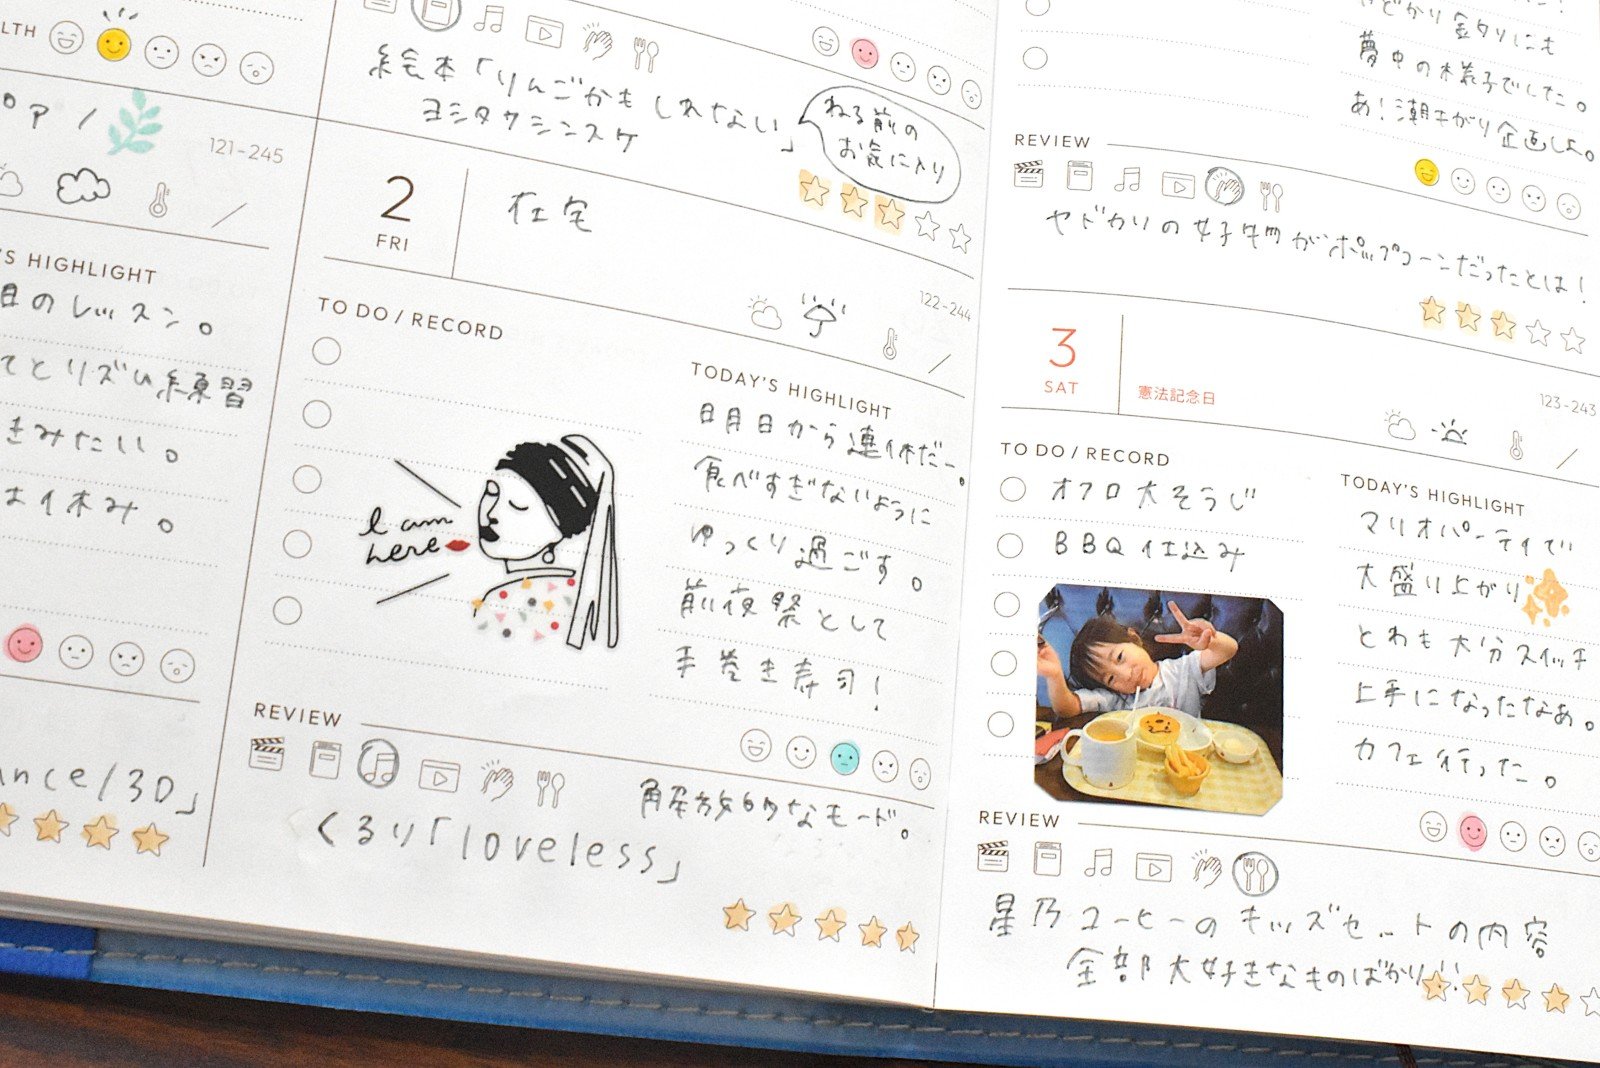 LTH
ア /
121-245
'S HIGHLIGHT
目のレッスン。
てとリズム練習
きみたい。
休み。
ance/3D」
絵本「りんごかもしれない」
ヨシタケシンスケ
ねる前の
お気に入り
2
FRI
在宅
122-244
TO DO / RECORD
I am
here
TODAY'S HIGHLIGHT
明日から連休だー。
食べすぎないように
ゆっくり過ごす。
前夜祭として
手巻き寿司!
REVIEW
解放的なモード。
くるり「loveless」
夢中の様子でした。
あ!潮干がり企画しよ。
REVIEW
ヤドカリの好物がポップコーンだったとは!
3
SAT
憲法記念日
123-243
TO DO / RECORD
オフロ大そうじ
BBQ仕込み
TODAY'S HIGHLIGHT
マリオパーティで
大盛り上がり
とわも大分スイッチ
上手になったなあ。
カフェ行った。
REVIEW
星乃コーヒーのキッズセットの内容
全部大好きなものばかり!!